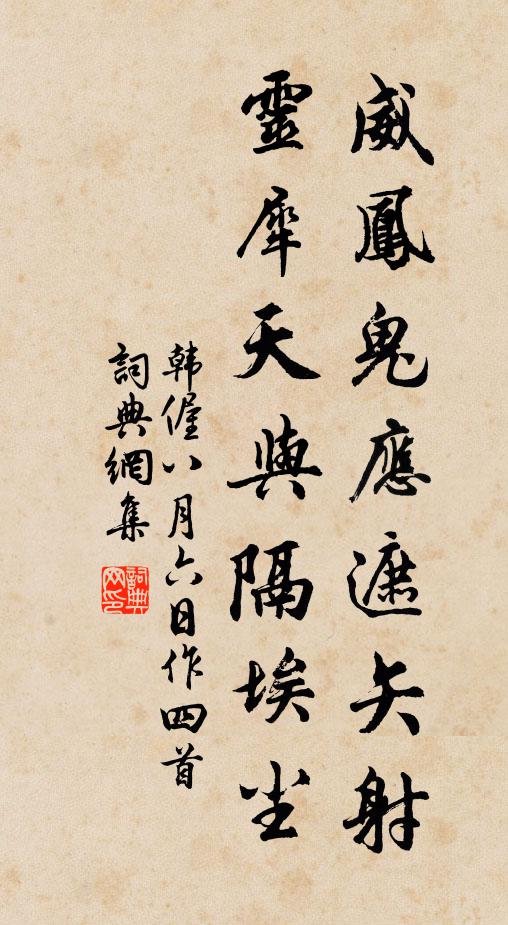 威鳳鬼應遮矢射
靈犀天與隔埃尘
韩偓八月六日作四首
詞典網集
詞典
网印